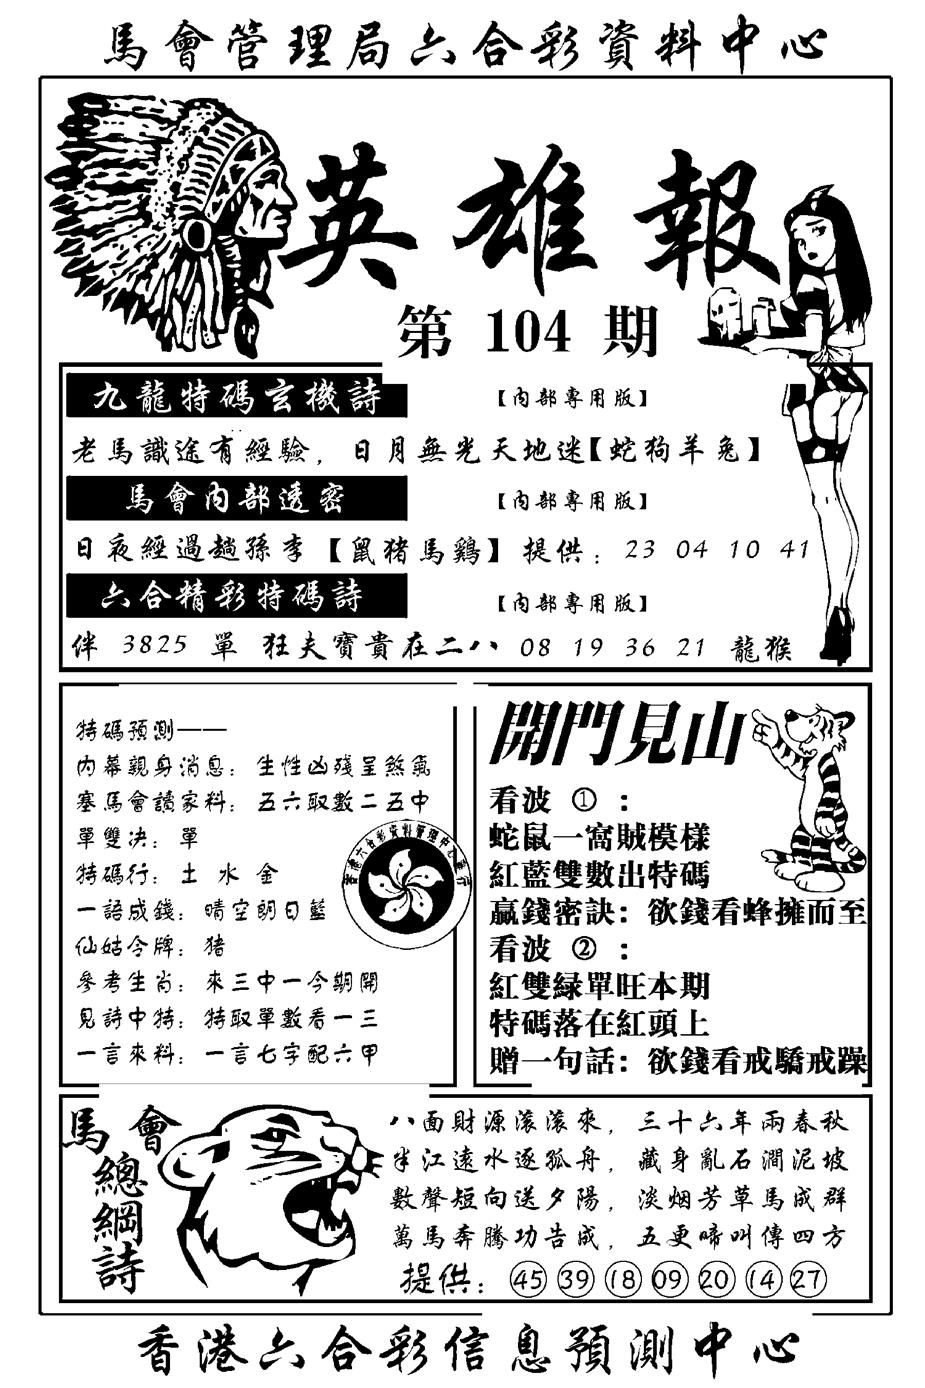 馬會管理局六合彩資料中心
英雄報
第 104 期
九龍特碼玄機詩 【內部專用版】
老馬識途有經驗，日月無光天地迷【蛇狗羊兔】
馬會內部透密 【內部專用版】
日夜經過趙孫李【鼠猪馬鷄】提供：23 04 10 41
六合精彩特碼詩 【內部專用版】
伴 3825 單 狂夫寶貴在二八 08 19 36 21 龍猴
特碼預測——
內幕親身消息：生性凶殘呈煞氣
塞馬會讀家料：五六取數二五中
單雙决：單
特碼行：土 水 金
一語成錢：晴空朗日藍
仙姑令牌：猪
參考生肖：來三中一今期開
見詩中特：特取單數看一三
一言來料：一言七字配六甲
開門見山
看波 ①：
蛇鼠一窩賊模樣
紅藍雙數出特碼
贏錢密訣：欲錢看蜂擁而至
看波 ②：
紅雙緑單旺本期
特碼落在紅頭上
贈一句話：欲錢看戒驕戒躁
馬會
總綱詩
八面財源滾滾來，三十六年兩春秋
半江遠水逐孤舟，藏身亂石澗泥坡
數聲短向送夕陽，淡烟芳草馬成群
萬馬奔騰功告成，五更啼叫傳四方
提供：㊺ ㊴ ⑱ 09 ⑳ ⑭ ㉗
香港六合彩信息預測中心